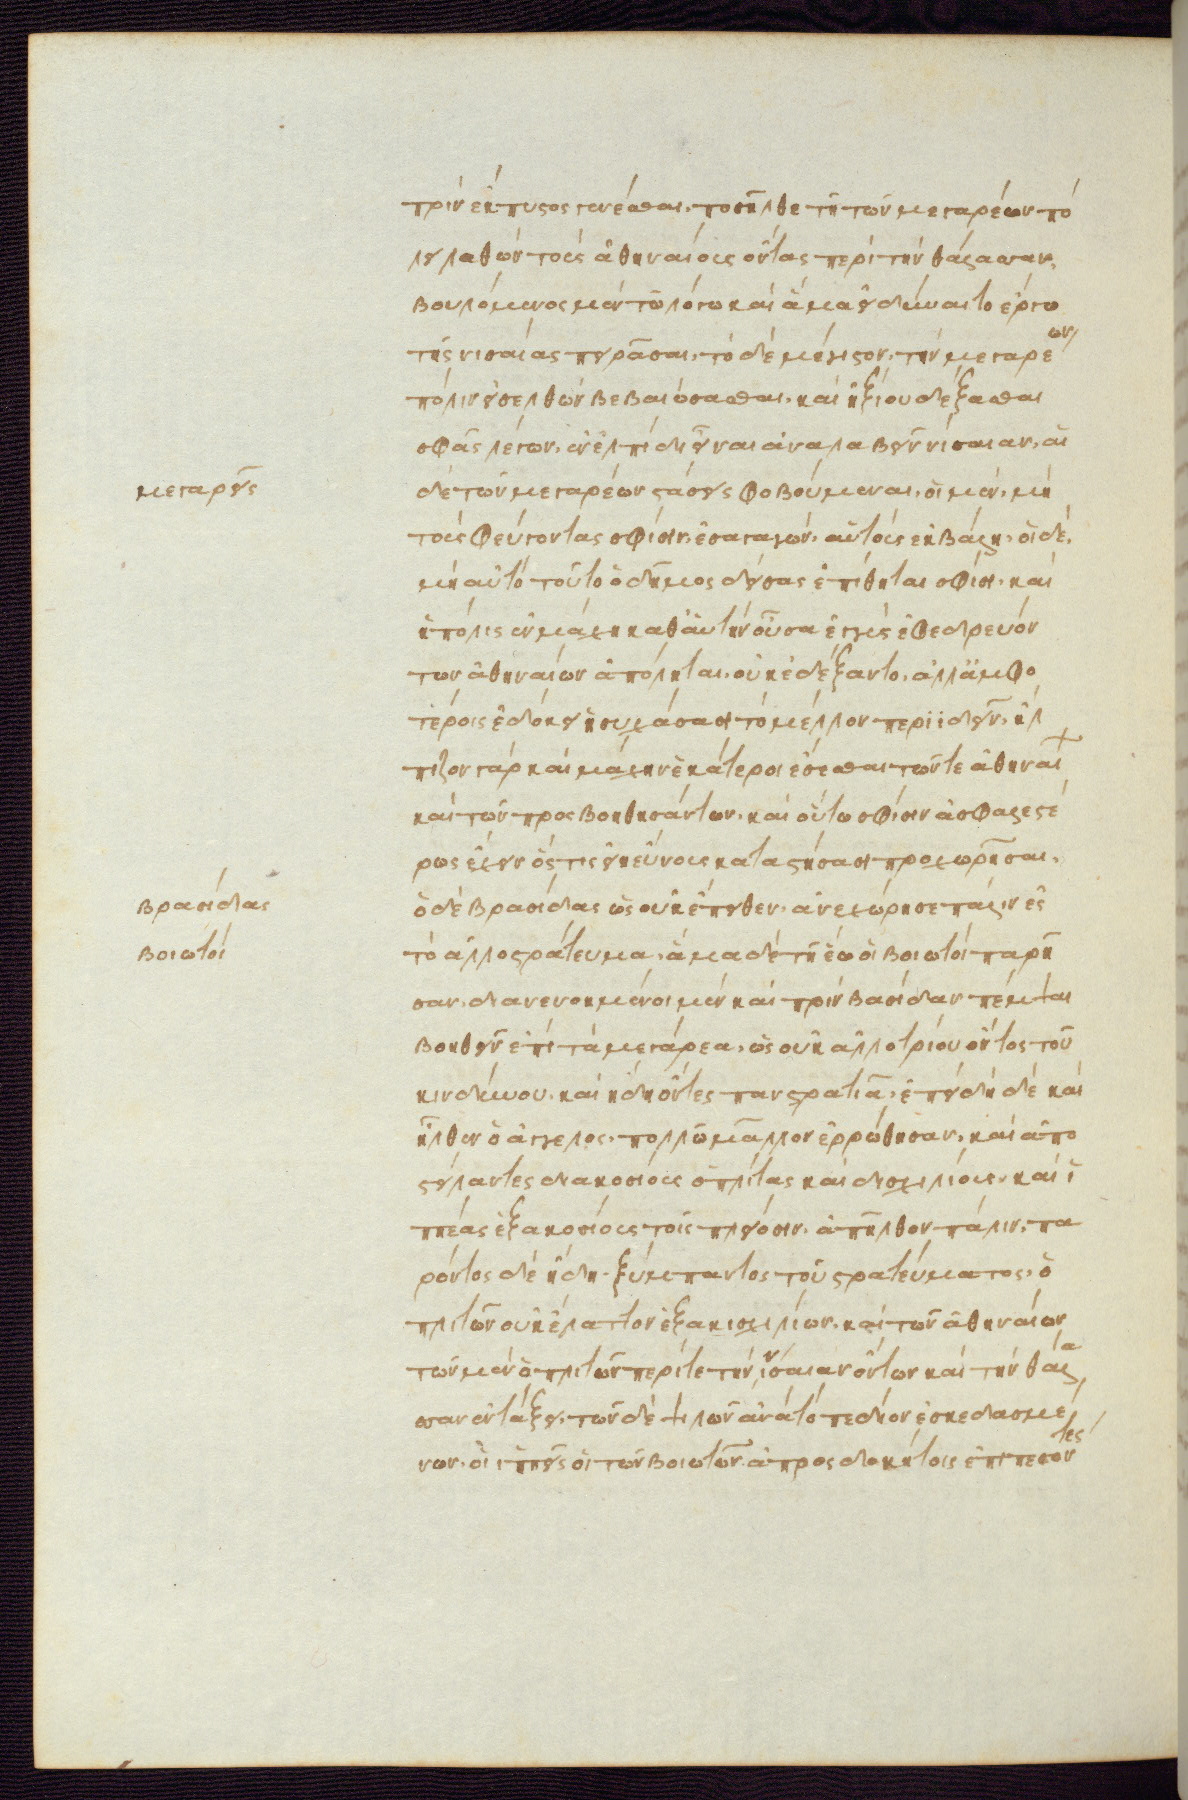 πρὶν ἔκπυστος γενέσθαι, προσῆλθε τῇ τῶν μεγαρέων πό
λει λαθὼν τοὺς ἀθηναίους ὄντας περὶ τὴν θάλασσαν,
βουλόμενος μὲν τῷ λόγῳ καὶ ἅμα εἰ δύναιτο ἔργῳ
τῆς νισαίας πειρᾶσαι, τὸ δὲ μέγιστον, τὴν μεγαρέων
πόλιν εἰσελθὼν βεβαιώσασθαι, καὶ ἠξίου δέξασθαι
σφᾶς λέγων, ἐν ἐλπίδι εἶναι ἀναλαβεῖν νίσαιαν, αἱ
μεγαρεῖς
δὲ τῶν μεγαρέων στάσεις φοβούμεναι, οἱ μὲν, μὴ
τοὺς φεύγοντας σφίσιν, ἐσαγαγὼν, αὐτοὺς ἐκβάλῃ, οἱ δὲ,
μὴ αὐτὸ τοῦτο ὁ δῆμος δείσας ἐπίθηται σφίσι, καὶ
ἡ πόλις ἐν μάχῃ καθ' αὑτὴν οὖσα ἐγγὺς ἐφεδρευόν
των ἀθηναίων ἀπόληται, οὐκ ἐδέξαντο, ἀλλ' ἀμφο
τέροις ἐδόκει ἡσυχάσασι τὸ μέλλον περιϊδεῖν, ἤλ
πιζον γὰρ καὶ μάχην ἑκάτεροι ἔσεσθαι τῶν τε ἀθηναί
καὶ τῶν προσβοηθησάντων, καὶ οὕτω σφίσιν ἀσφαλεστέ
ρως ἔχειν ὅς τις εἴη εὔνους καταστήσασι προχωρῆσαι,
βρασίδας
ὁ δὲ βρασίδας ὡς οὐκ ἔπειθεν, ἀνεχώρησε πάλιν ἐς
βοιωτοί
τὸ ἄλλο στράτευμα, ἅμα δὲ τῇ ἕῳ οἱ βοιωτοὶ παρῆ
σαν, διανενοημένοι μὲν καὶ πρὶν βασίδαν πέμψαι
βοηθεῖν ἐπὶ τὰ μεγάρεα, ὡς οὐκ ἀλλοτρίου ὄντος τοῦ
κινδύνου, καὶ ἤδη ὄντες πανστρατιᾷ, ἐπειδὴ δὲ καὶ
ἦλθεν ὁ ἄγγελος, πολλῷ μᾶλλον ἐρρώθησαν, καὶ ἀπο
στείλαντες διακοσίους ὁπλίτας καὶ δισχιλίους, καὶ ἱ
ππέας ἑξακοσίους τοῖς πλείοσιν, ἀπῆλθον πάλιν, πα
ρόντος δὲ ἤδη ξύμπαντος τοῦ στρατεύματος, ὁ
πλιτῶν οὐκ ἔλαττον ἑξακισχιλίων, καὶ τῶν ἀθηναίων
τῶν μὲν ὁπλιτῶν περί τε τὴν νίσαιαν ὄντων καὶ τὴν θάλα
σσαν ἐν τάξει, τῶν δὲ ψιλῶν ἀνὰ τὸ πεδίον ἐσκεδασμέ
νων, οἱ ἱππεῖς οἱ τῶν βοιωτῶν ἀπροσδοκήτοις ἐπιπεσόντες